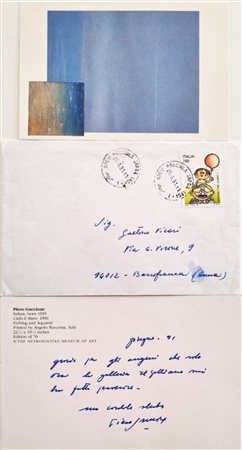 ITALIA
Sig.
Gaetano Vicari
Via G. Verone, 9
94012 - Barrafranca (Enna)
Piero Guccione
Italian, born 1935
Cielo E Mare, 1990
Etching and Aquatint
Printed by Angelo Buscema, Italy
Edition of 70
© THE METROPOLITAN MUSEUM OF ART
giugno. 91
grazie per gli auguri che solo
ora la galleria
mi
ha fatto pervenire.
un cordiale saluto
Piero Guccione